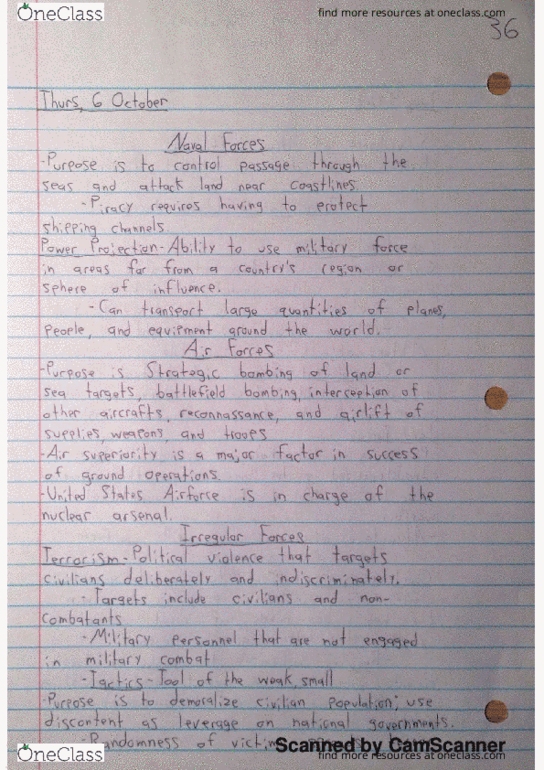 OneClass
find more resources at oneclass.com
36
Thurs, 6 October
Naval Forces
-Purpose is to control passage through the
seas and attack land near coastlines
-Piracy requires having to protect
shipping channels
Power Projection-Ability to use military force
in areas far from a country's region or
sphere of influence.
-Can transport large quantities of planes,
People, and equipment around the world.
Air Forces
-Purpose is Strategic bombing of land or
sea targets, battlefield bombing, interception of
other aircrafts, reconnassance, and airlift of
supplies, weapons, and troops
-Air superiority is a major factor in success
of ground operations.
-United States Airforce is in charge of the
nuclear arsenal.
Irregular Forces
Terrorism-Political violence that targets
civilians deliberately and indiscriminately.
-Targets include civilians and non-
combatants
-Military Personnel that are not engaged
in military combat
-Tactics-Tool of the weak, small
-Purpose is to demoralize civilian Population; use
discontent as leverage on national governments.
-Randomness of victim
Scanned by CamScanner
OneClass
find more resources at oneclass.com